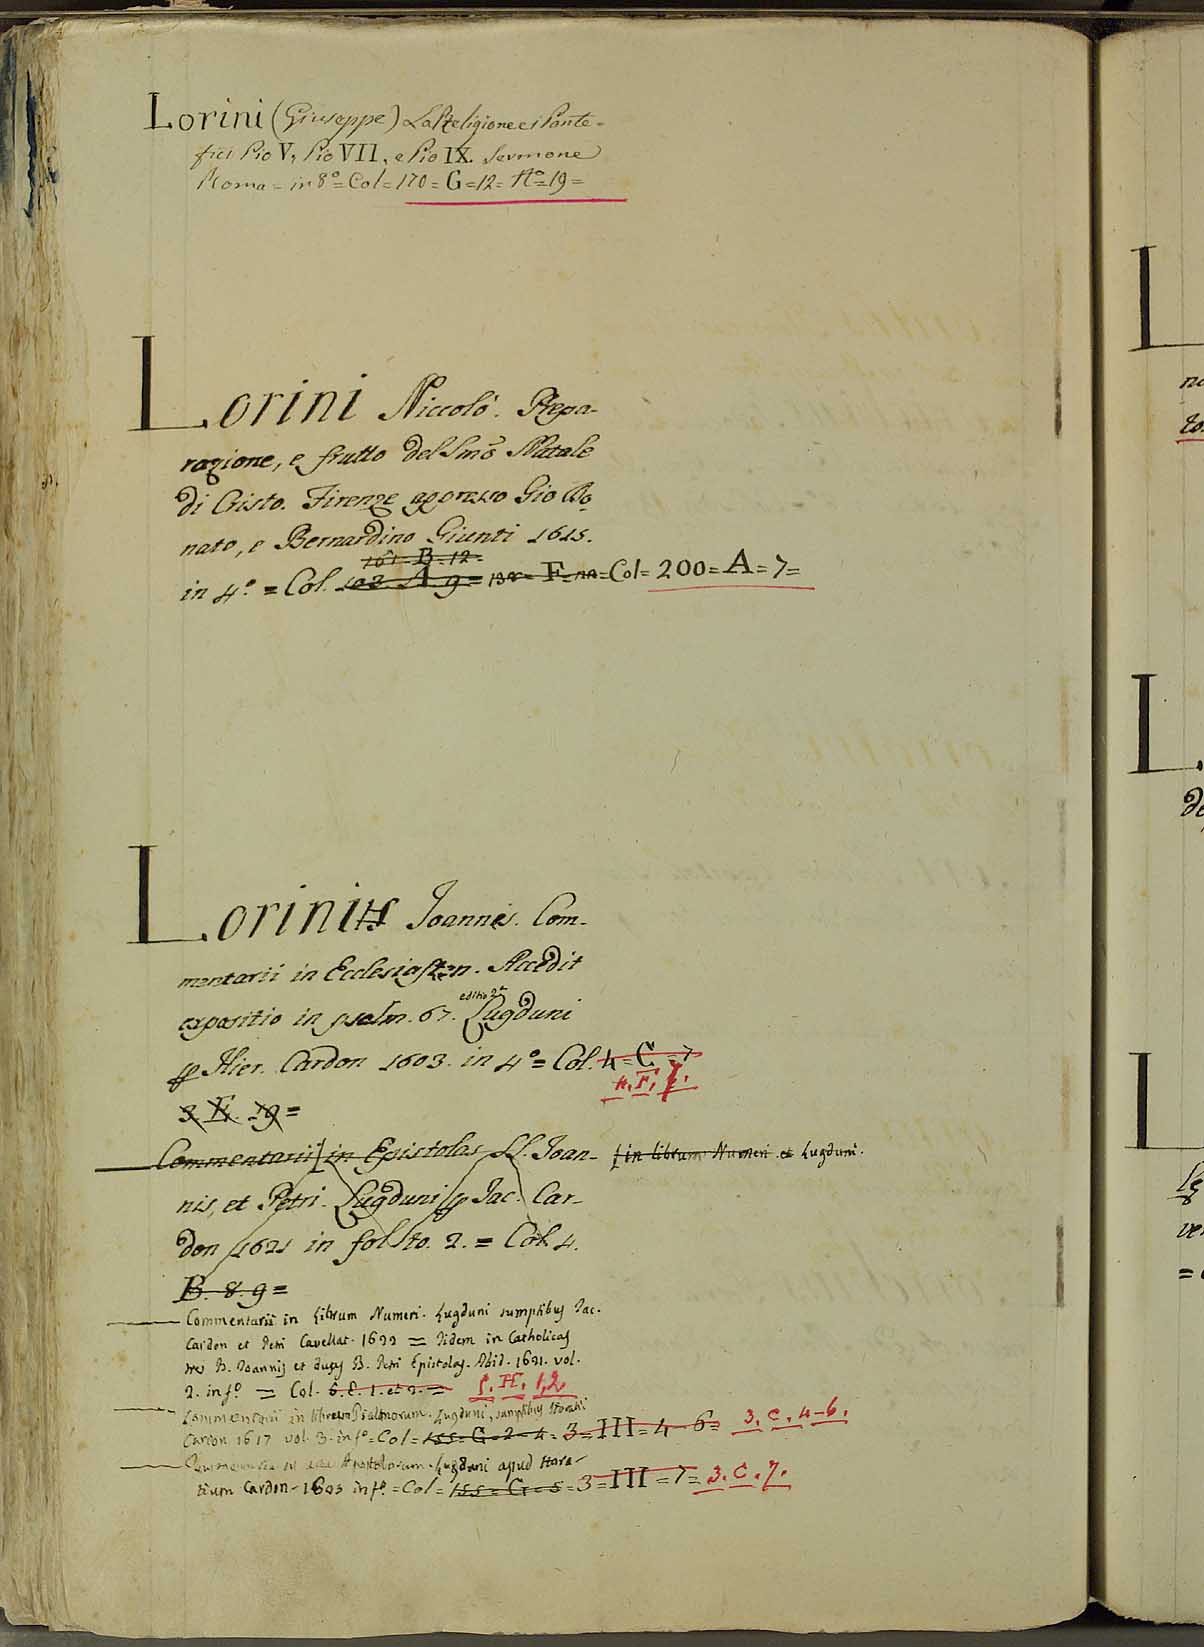 Lorini (Giuseppe) La Religione e i Ponte-
fici Pio V, Pio VII, e Pio IX. Sermone
Roma = in 8º = Col = 170 = G = 12 = Nº = 19 =
Lorini Niccolò. Prepa-
razione, e frutto del Smõ Natale
di Cristo. Firenze appresso Gio Do
nato, e Bernardino Giunti 1615.
101 = B = 12
in 4.º = Col. 102. A. 9 = = F = = Col = 200 = A = 7 =
Lorinus Joannes. Com-
mentarii in Ecclesiasten. Accedit
editio 2ª
expositio in psalm. 67. Lugduni
Hier. Cardon 1603. in 4º = Col. 4 = C = 7
4. F. 7.
3. E. 19 =
Commentarii in Epistolas SS. Joan- in librum Numeri et Lugduni.
nis, et Petri. Lugduni Jac. Car-
don 1621 in fol to. 2. = Col. 4.
B. 8. 9 =
Commentarii in Librum Numeri. Lugduni sumptibus Jac.
Cardon et Petri Cavellat. 1622 = Iidem in Catholicas
tres B. Joannis et duas B. Petri Epistolas. Ibid. 1621. vol.
2. in fº = Col. 6. E. 1. et 2. = H. 1, 2
Commentarii in librum Psalmorum. Lugduni, sumptibus Horatii
Cardon 1617 vol. 3. in fº = Col = 155 = G = 2 = 4 = 3 = III = 4 = 6 = 3. C. 4-6.
Apostolorum. Lugduni apud Hora-
tium Cardon - 1605 in fº. = Col = 155 = G = 5 = 3 = III = 7 = 3. C. 7.
L
L.
L